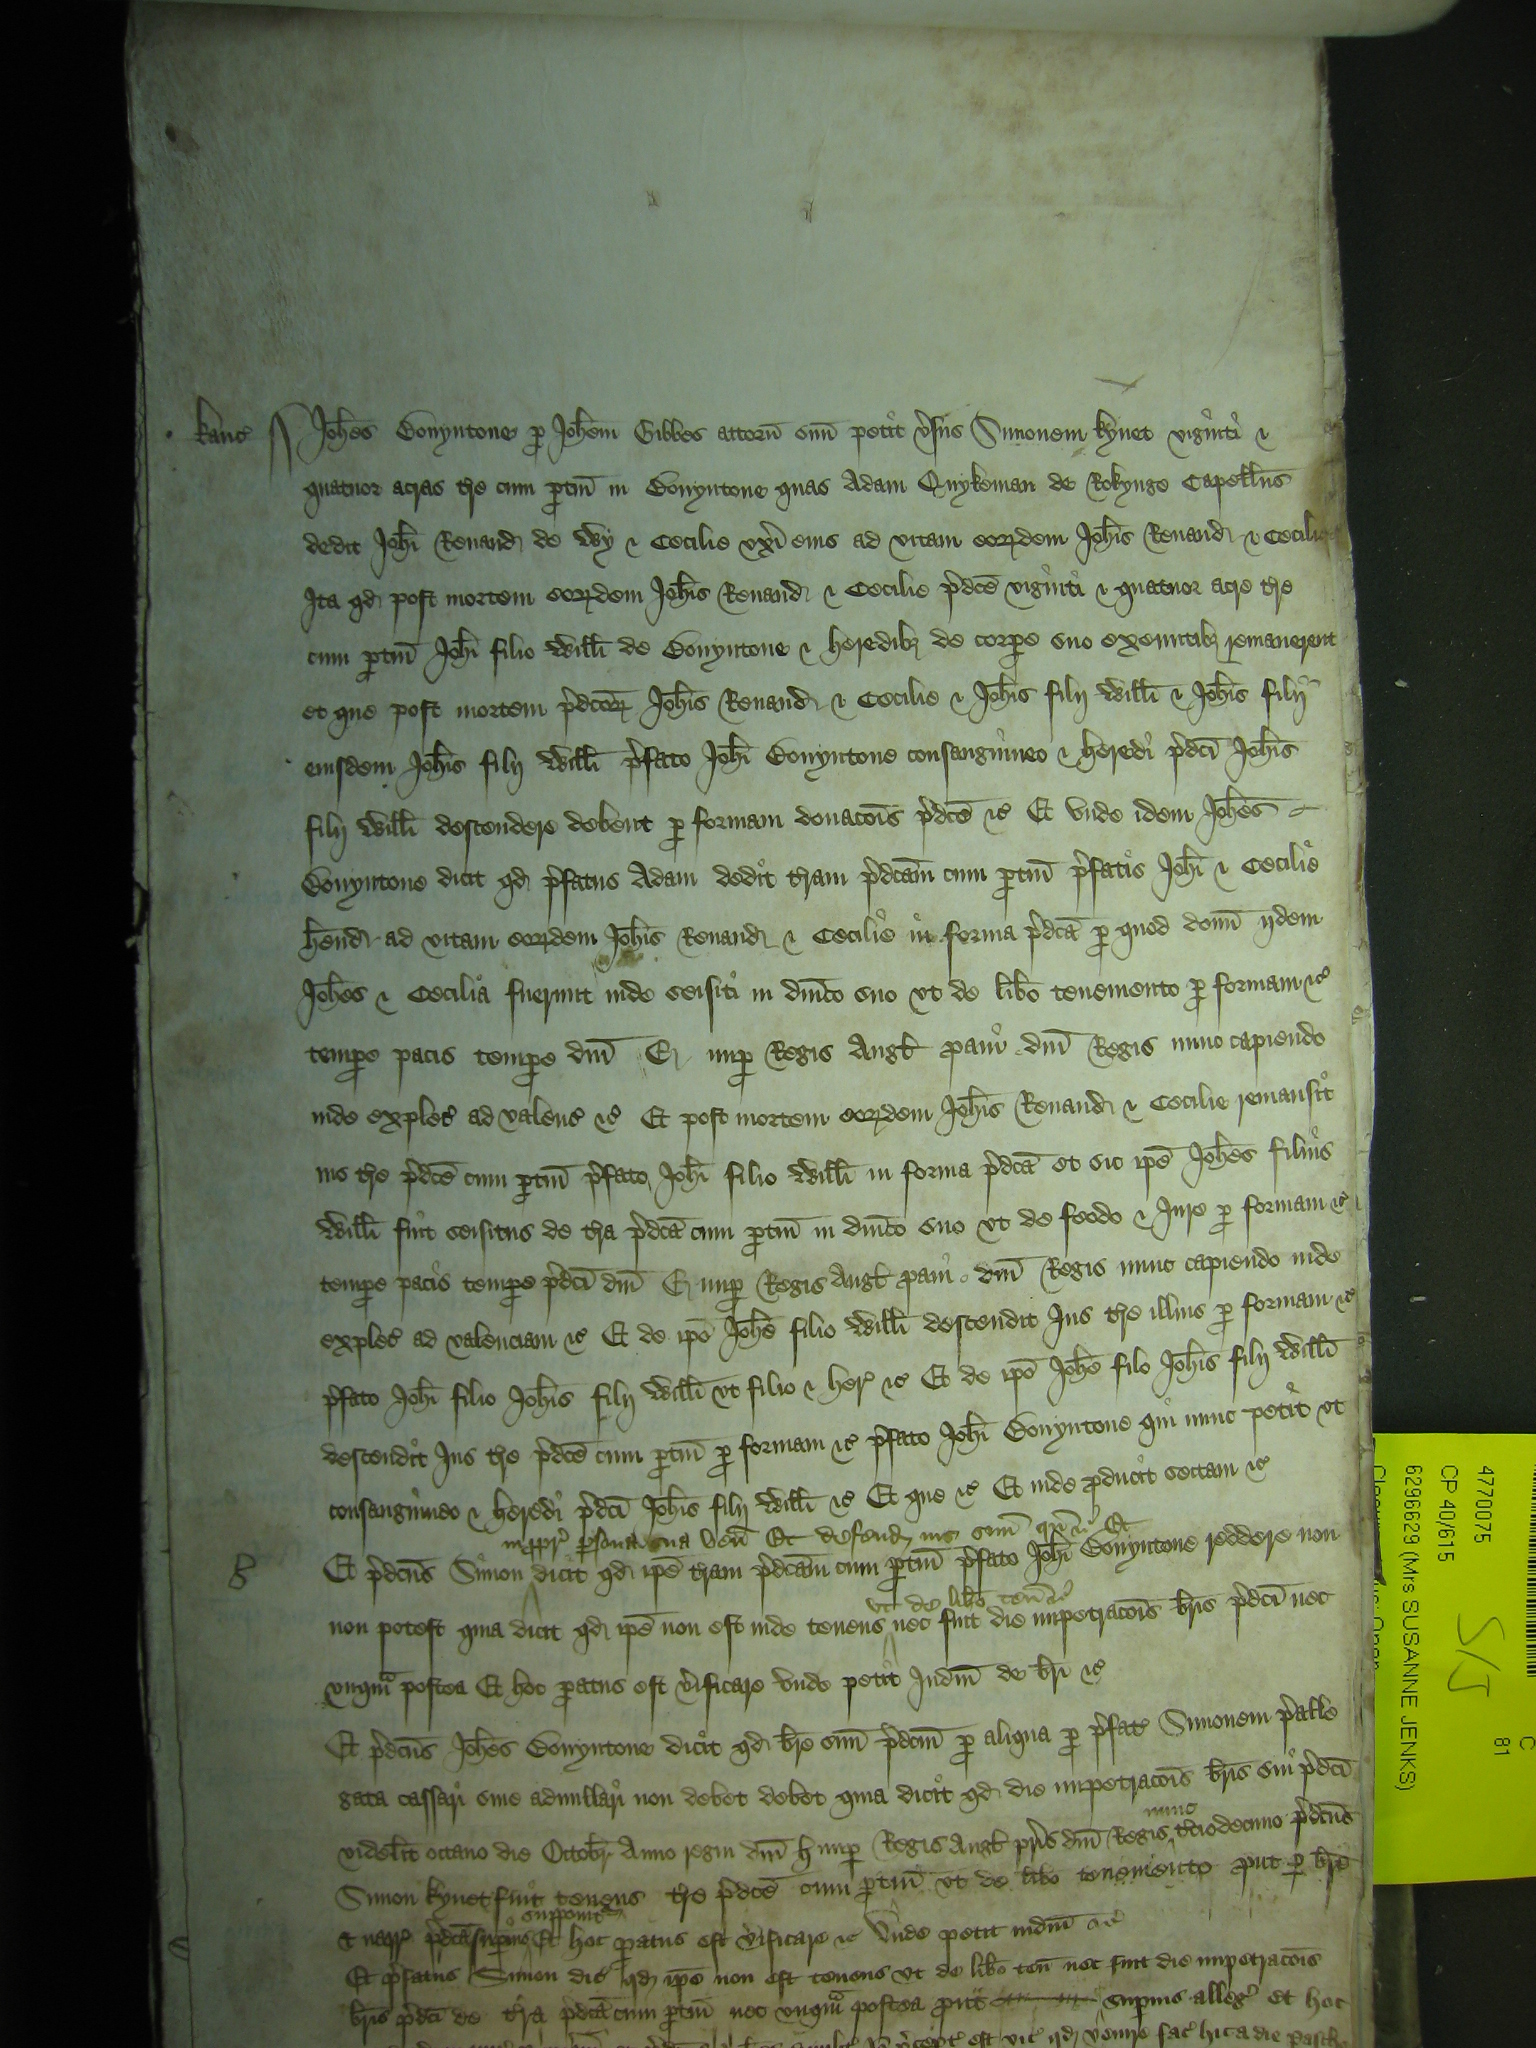 kanc̄ Joh̄es Bonyntone p̱ Joh̄em Gibbes attorn̄ suū petit v̄sus Simonem kynet viginti &
quatuor acras t̄re cum p̱tin̄ in Bonyntone quas Adam Quykeman de Rokynge Capellūs
dedit Joh̄i Renaud de Wy & Cecilie vxi eius ad vitam eoꝝdem Joh̄is Renaud & Cecilie
Ita qd post mortem eoꝝdem Joh̄is Renaud & Cecilie p̄dc̄e viginti & quatuor acre t̄re
cum p̱tin̄ Joh̄i filio Willi̅ de Bonyntone & heredibꝫ de corpe suo exeuntibꝫ remanerent
et que post mortem p̄dc̄oꝝ Joh̄is Renaud & Cecilie & Joh̄is filij Willi̅ & Joh̄is filij
eiusdem Joh̄is filij Willi̅ p̄fato Joh̄i Bonyntone consanguineo & heredi p̄dc̄i Joh̄is
filij Willi̅ descendere debent p̱ formam donaco̅is p̄dc̄e &c̄ Et vnde idem Joh̄es
Bonyntone dicit qd p̄fatus Adam dedit t̄ram p̄dc̄am cum p̱tin̄ p̄fatis Joh̄i & Cecilie
h̄end ad vitam eoꝝdem Joh̄is Renaud & Cecilie in forma p̄dc̄a p̱ quod donū ijdem
Joh̄es & Cecilia fuerunt inde seisiti in dn̄ico suo vt de lib̄o tenemento p̱ formam &c̄
tempe pacis tempe dn̄i E nup̱ Regis Angl̄ p̱aui dn̄i Regis nunc capiendo
inde exples̄ ad valenc̄ &c̄ Et post mortem eoꝝdem Joh̄is Renaud & Cecilie remansit
ius t̄re p̄dc̄e cum p̱tin̄ p̄fato Joh̄i filio Willi̅ in forma p̄dc̄a et sic ip̄e Joh̄es filius
Willi̅ fuit seisitus de t̄ra p̄dc̄a cum p̱tin̄ in dn̄ico suo vt de feodo & Jure p̱ formam &c̄
tempe pacis tempe p̄dc̄i dn̄i E nup̱ Regis Angl̄ p̱aui dn̄i Regis nunc capiendo inde
exples̄ ad valenciam &c̄ Et de ip̄o Joh̄e filio Willi̅ descendit Jus t̄re illius p̱ formam &c̄
p̄fato Joh̄i filio Joh̄is filij Willi̅ vt filio & her̄ &c̄ Et de ip̄o Joh̄e filo Joh̄is filij Willi̅
descendit Jus t̄re p̄dc̄e cum p̱tin̄ p̱ formam &c̄ p̄fato Joh̄i Bonyntone qui nunc petit vt
consanguineo & heredi p̄dc̄i Joh̄is filij Willi̅ &c̄ Et que &c̄ Et inde p̱ducit sectam &c̄
in pp̄r p̱sona sua ven̄ Et defend ius suū qn̄ &c̄ Et
Et p̄dc̄us Simon dicit qd ip̄e t̄ram p̄dc̄am cum p̱tin̄ p̄fato Joh̄i Bonyntone reddere non
vt de lib̄o ten̄ &c̄
non potest quia dicit qd ip̄e non est inde tenens nec fuit die impetraco̅is b̄ris p̄dc̄i nec
vnqm̄ postea Et hoc p̱atus est v̄ificare vnde petit Judm̄ de b̄ri &c̄
Et p̄dc̄us Joh̄es Bonyntone dicit qd b̄re suū p̄dc̄m p̱ aliqua p̱ p̄fat̄ Simonem p̄alle
gata cassari siue adnullari non debet debet quia dicit qd die impetraco̅is b̄ris sui p̄dc̄i
nunc
videlt̄ octauo die Octobr̄ Anno regni dn̄i H nup̱ Regis Angl̄ pr̄is dn̄i Regis t̄ciodecimo p̄dc̄us
Simon kynet fuit tenens t̄re p̄dc̄e cum p̱tin̄ vt de lib̄o tenemento put p̱ b̄re
supponit̄
& narr̄ p̄dc̄a Et hoc p̱atus est v̄ificare &c̄ Vnde petit iudm̄ &c̄
Et p̄fatus Simon dic̄ qd ip̄e non est tenens vt de lib̄o ten̄ nec fuit die impetraco̅is
b̄ris p̄dc̄i de t̄ra p̄dc̄a cum p̱tin̄ nec vnqm̄ postea put sup̱ius alleḡ et hoc
4770075
CP 40/615
6296629 (Mrs SUSANNE JENKS)
S/J
81
C